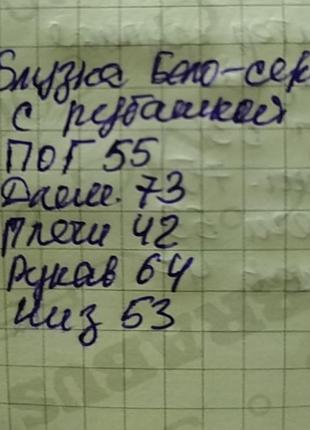 Блузка Бело-сер
с рубашкой
ПОГ 55
Длин. 73
Плечи 42
Рукав 64
Низ 53